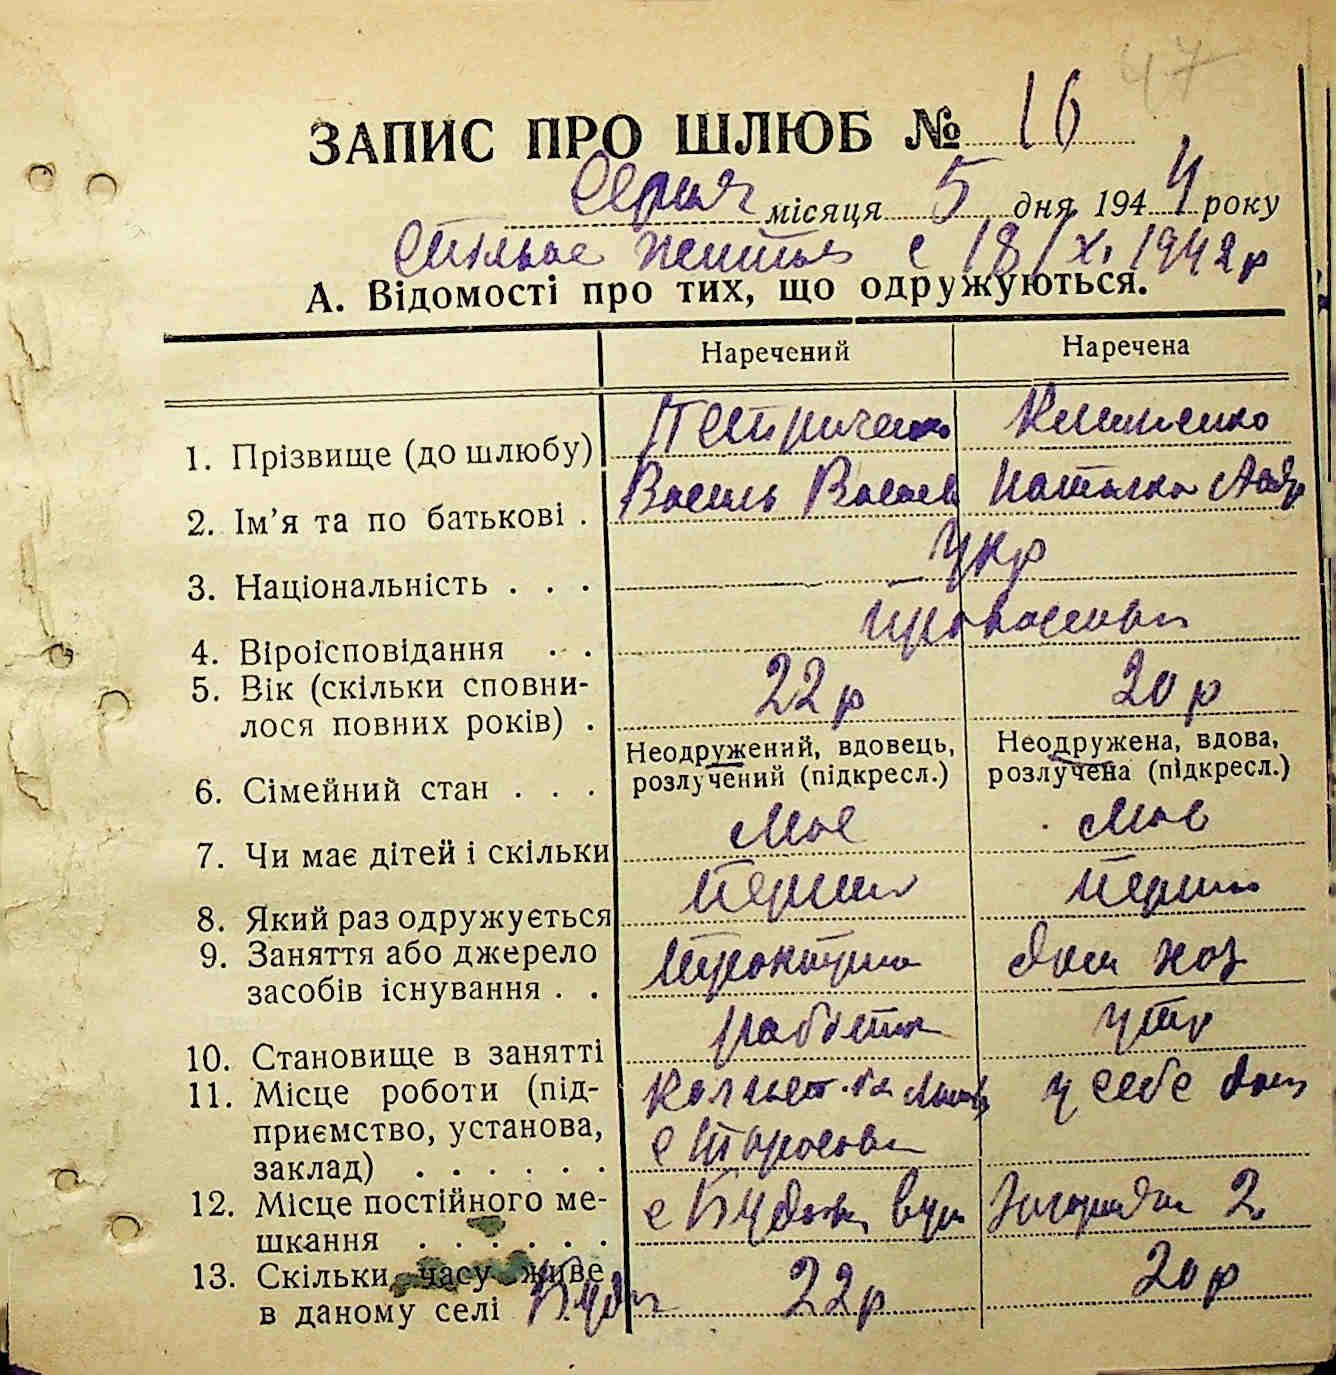 47
ЗАПИС ПРО ШЛЮБ № 16
Серпня місяця 5 дня 1944 року
Спільне життя с 18/XI 1942 р
А. Відомості про тих, що одружуються.
Наречений Наречена
1. Прізвище (до шлюбу) Петриченко Клименко
2. Ім’я та по батькові . Василь Васил Наталка
3. Національність . . . Укр
4. Віроісповідання . . православн
5. Вік (скільки сповни- 22 р 20 р
лося повних років) .
Неодружений, вдовець, Неодружена, вдова,
6. Сімейний стан . . . розлучений (підкресл.) розлучена (підкресл.)
7. Чи має дітей і скільки Має Має
8. Який раз одружується Перший Перший
9. Заняття або джерело дом хоз
засобів існування . .
10. Становище в занятті работник утр
11. Місце роботи (під- у себе дом
приємство, установа, с Тарасівка
заклад) . . . . . .
12. Місце постійного ме- с Буда вул 2
шкання . . . . . .
13. Скільки часу живе 22 р 20 р
в даному селі Буда